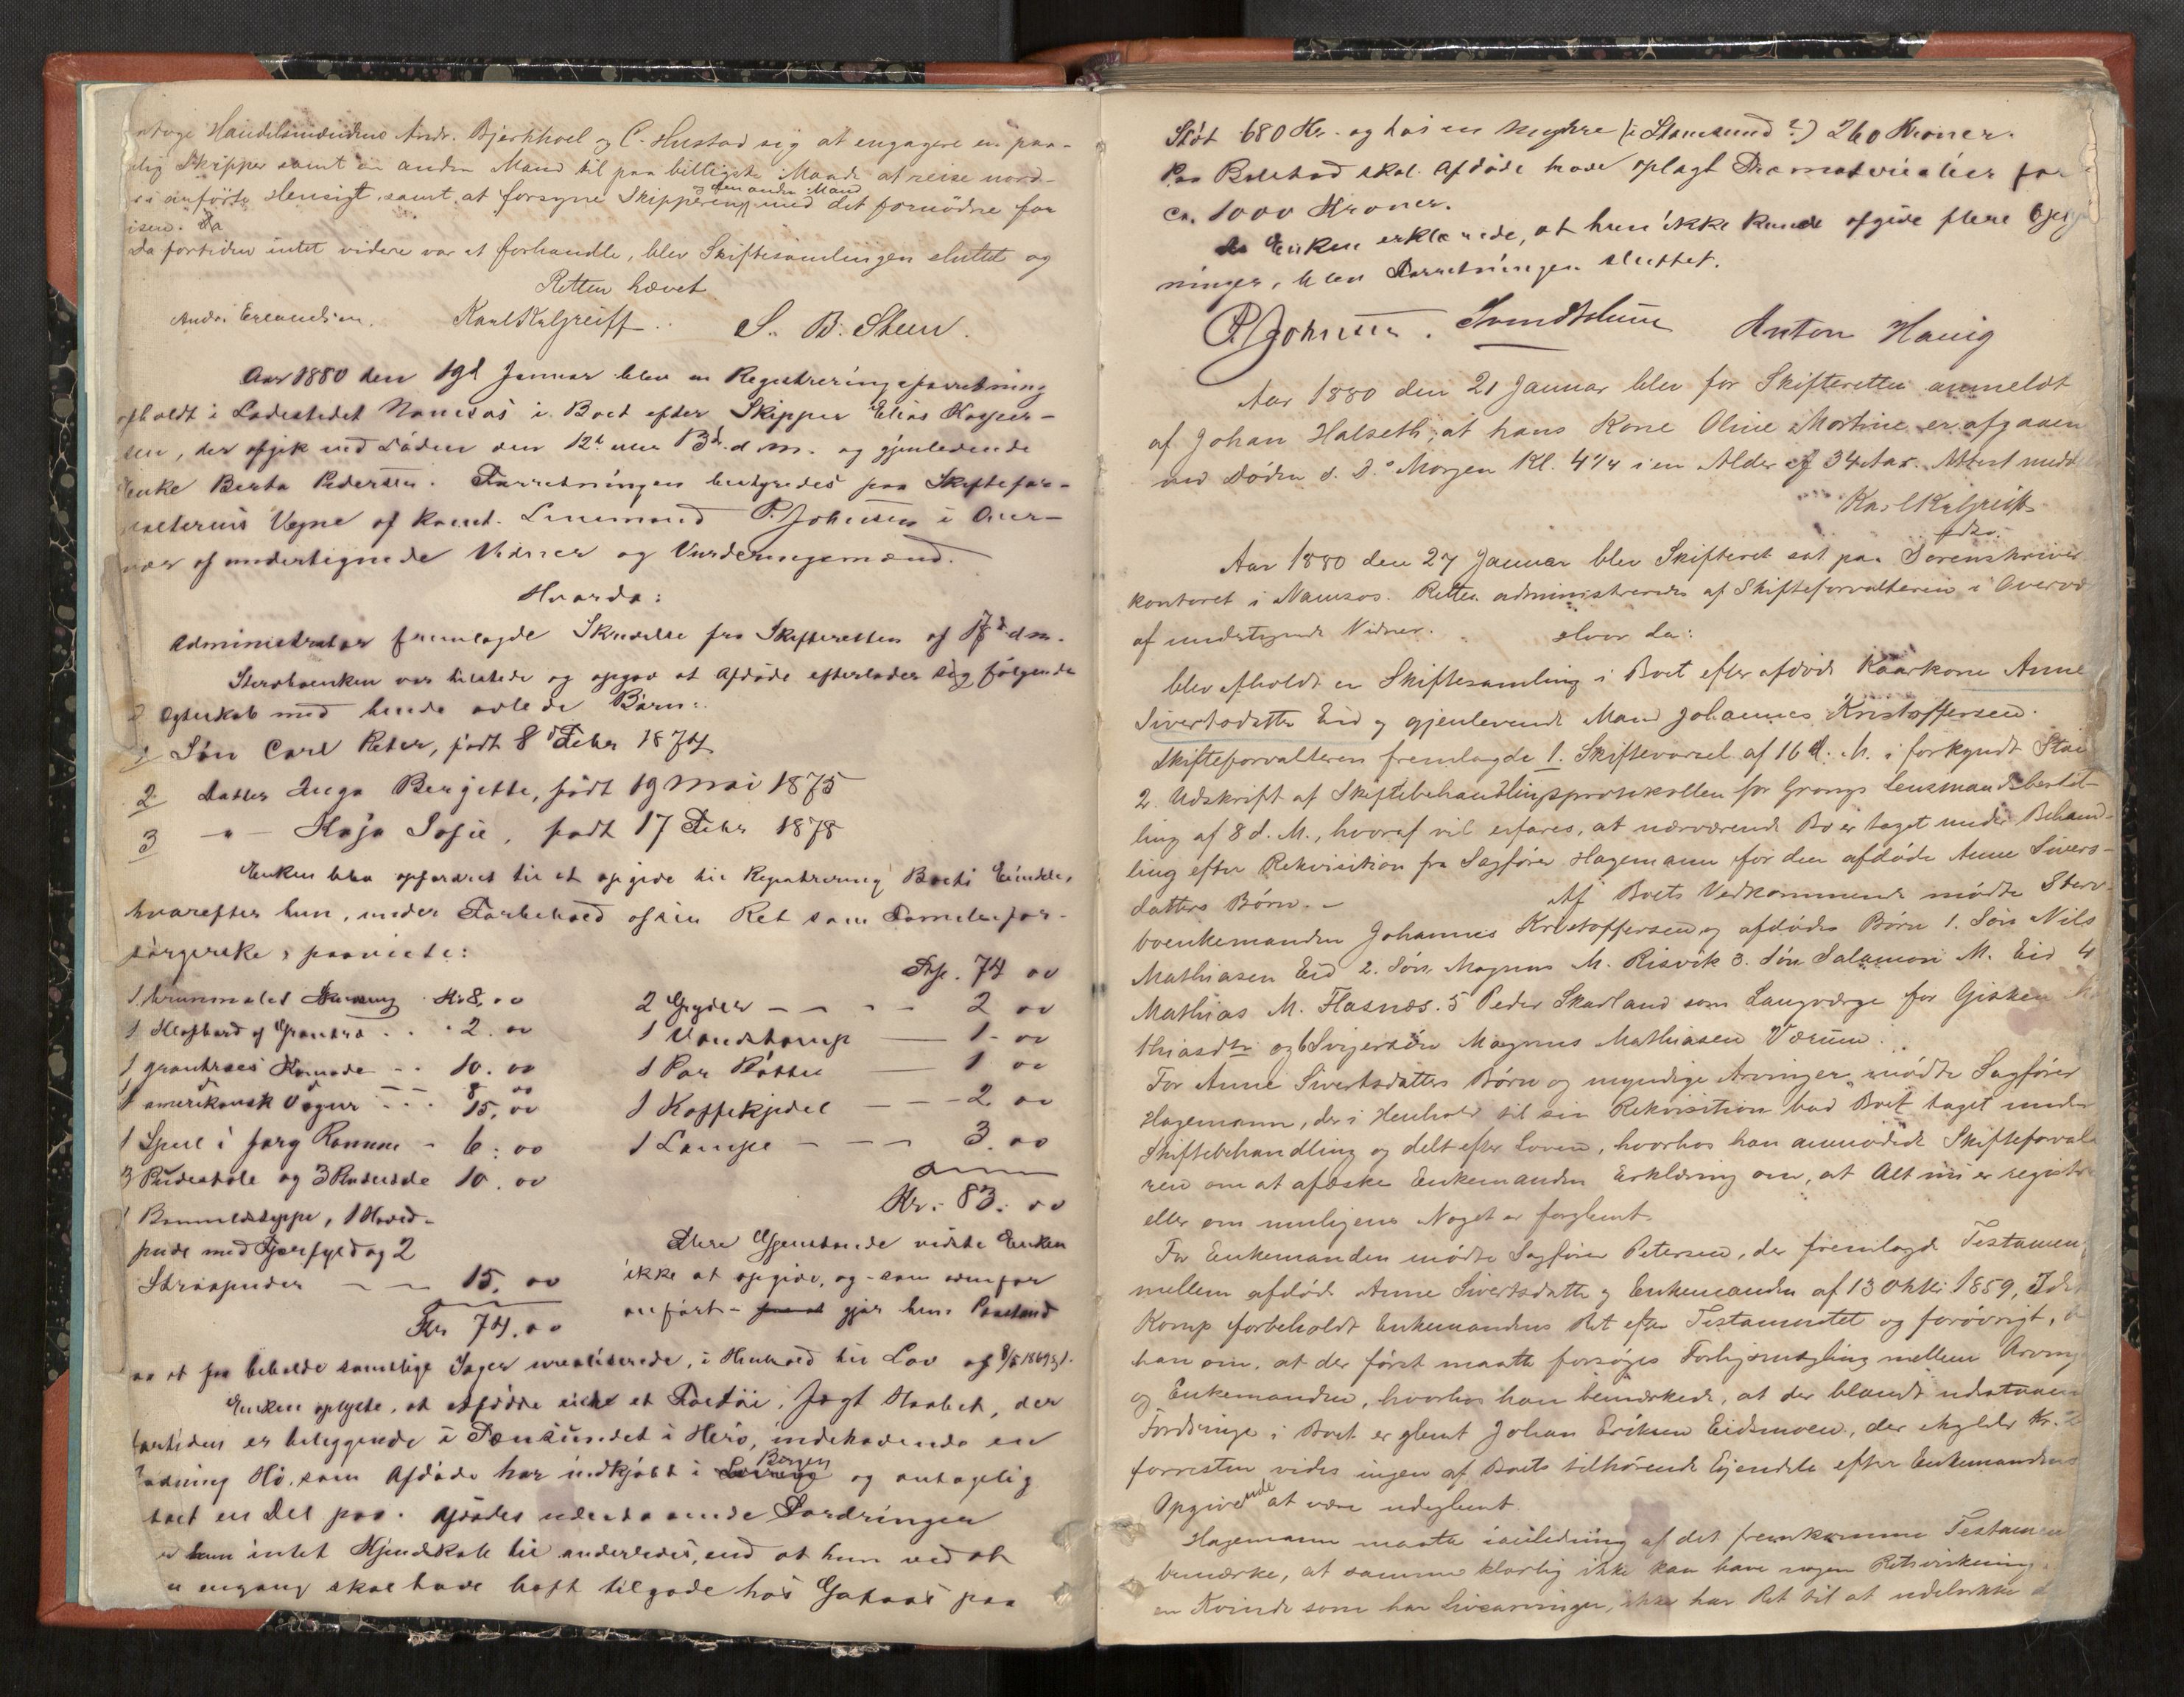 Handelsmændene Andr. Bjerkhoel og C. Hustad sig at engagere en paa-
lig Skipper samt en anden Mand til paa billigste Maade at reise nord-
anførte Hensigt, samt at forsyne Skipperen og den anden Mand med det fornødne for
Da
Da fortiden intet videre var at forhandle, blev Skiftesamlingen sluttet og
Retten hævet
Andr. Erlandsen. Karl Kalgreiff. S. B. Steen.
Aar 1880 den 19d Januar blev en Registreringsforretning
afholdt i Ladestedet Namsos i Boet efter Skipper Elias Kasper-
sen, der afgik ved Døden den 12d. d. m. og gjenlevende
Enke Berta Pedersen. Forretningen bestyredes paa Skiftefor-
valterens Vegne af konst. Lensmand P. Johnsen i Over-
vær af undertegnede Vidner og Vurderingsmænd.
Hvorda:
Administrator fremlagde Skrivelse fra Skifteretten af d.m.
Stervboenken var tilstede og opgav at Afdøde efterlader sig følgende
i Egteskab med hende avlede Børn:
1 Søn Carl Peter, født 8d Febr 1874
2 Datter Inga Bergitte, født 19 Mai 1875
3 -"- Kaja Sofie, født 17 Febr 1878
Enken blev opfordret til at opgive til Registrering Boets Eiendele,
hvorefter hun, under Forbehold af sin Ret som Familiefor-
sørgerske, paaviste:
1 brunmalet Kr 8.00
1 Klafbord af Grantræ . . 2.00
1 grantræes Komode - - 10.00
8 00
1 amerikansk Vægur . . . 15.00
1 Speil i forg Ramme - 6.00
3 Pindestole og 3 10.00
1 Bommuldstæppe, 1 Hoved-
pude med Fjærfyld og 2
Straapuder - - 15.00
Kr 74.00
Trsp. 74 00
2 Gryder - - - 2 00
1 Vandkamp — 1.00
1 Par Bøtter — 1 00
1 Kaffekjedel - - - 2 00
1 Lampe - - - 3.00
Kr. 83.00
Flere Gjenstande vidste Enken
ikke at opgive, og - som ovenfor
anført - gjør hun Paastand
paa at faa beholde samtlige Sager urealiserede, i Henhold til Lov af
Enken oplyste, at Afdøde eiede et Fartøi, Jagt Haabet, der
fortiden er beliggende i i Herø, indehavende en
Ladning Hø, som Afdøde har indkjøbt i Bergen og antagelig
en Del paa. Afdødes udestaaende Fordringer
hun intet Kjendskab til anderledes, end at hun ved at
engang skal have haft tilgode hos paa
Støt 680 Kr. og hos en Myhre (i Stamsund?) 260 Kroner.
Paa Bolstad skal Afdøde have oplagt Træmaterialier for
ca. 1000 Kroner.
Da Enken erklærede, at hun ikke kunde opgive flere Oplys
ninger, blev Forretningen sluttet.
P. Johnsen. Anton Hauig
Aar 1880 den 21 Januar blev for Skifteretten anmeldt
af Johan Halseth, at hans Kone Oline Martine er afgaaen
ved Døden d. D. Morgen Kl. 4¼ i en Alder af 34 Aar. Attest medd
Karl Kalgreiff
Aar 1880 den 27 Januar blev Skifteret sat paa Sorenskriver
kontoret i Namsos. Retten administreredes af Skifteforvalteren i Overvæ
af undertegnede Vidner. Hvor da:
blev afholdt en Skiftesamling i Boet efter afdøde Kaarkone Anne
Sivertsdatter Eid og gjenlevende Mand Johannes Kristoffersen.
Skifteforvalteren fremlagde 1. Skiftevarsel af 16 d. M. i forkyndt Stand
2. Udskrift af Skiftebehandlingsprotokollen for Grongs Lensmandsbestil-
ling af 8 d. M., hvoraf vil erfares, at nærværende Bo er taget under Behand-
ling efter Rekvisition fra Sagfører Hagemann for den afdøde Anne Sivers-
datters Børn. - Af Boets Vedkommende mødte Sterv-
boenkemanden Johannes Kristoffersen og afdødes Børn 1. Søn Nils
Mathiasen Eid 2. Søn Magnus M. Risvik 3. Søn Salamon M. Eid 4
Mathias M. Flasnæs. 5 Peder Skarland som Laugværge for Gisken
thiasdtr og 6 Svigersøn Magnus Mathiasen Værum.
For Anne Sivertsdatters Børn og myndige Arvinger mødte Sagfører
Hagemann, der i Henhold til sin Rekvisition bad Boet taget under
Skiftebehandling og delt efter Loven, hvorhos han anmodede Skifteforval
ren om at afæske Enkemanden Erklæring om, at Alt nu er registre
eller om muligens Noget er forglemt.
For Enkemanden mødte Sagfører Petersen, der fremlagde Testamen
mellem afdøde Anne Sivertsdatter og Enkemanden af 13 Oktbr 1859,
Korup forbeholdt Enkemandens Ret efter Testamentet og forøvrigt,
han om, at der først maatte forsøges Forligsmægling mellem Arving
og Enkemanden, hvorhos han bemærkede, at der blandt udestaaen
Fordringe i Boet er glemt Johan Eriksen Eidsmoen, der skylder Kr.
forresten vides ingen af Boets tilhørende Eiendele efter Enkemandens
Opgivende at være udeglemt.
Hagemann maatte i anledning af det fremkomne Testamen
bemærke, at samme klarlig ikke kan have nogen Retsvirkning
en Kvinde som har Livsarvinger, ikke har Ret til at udelukke